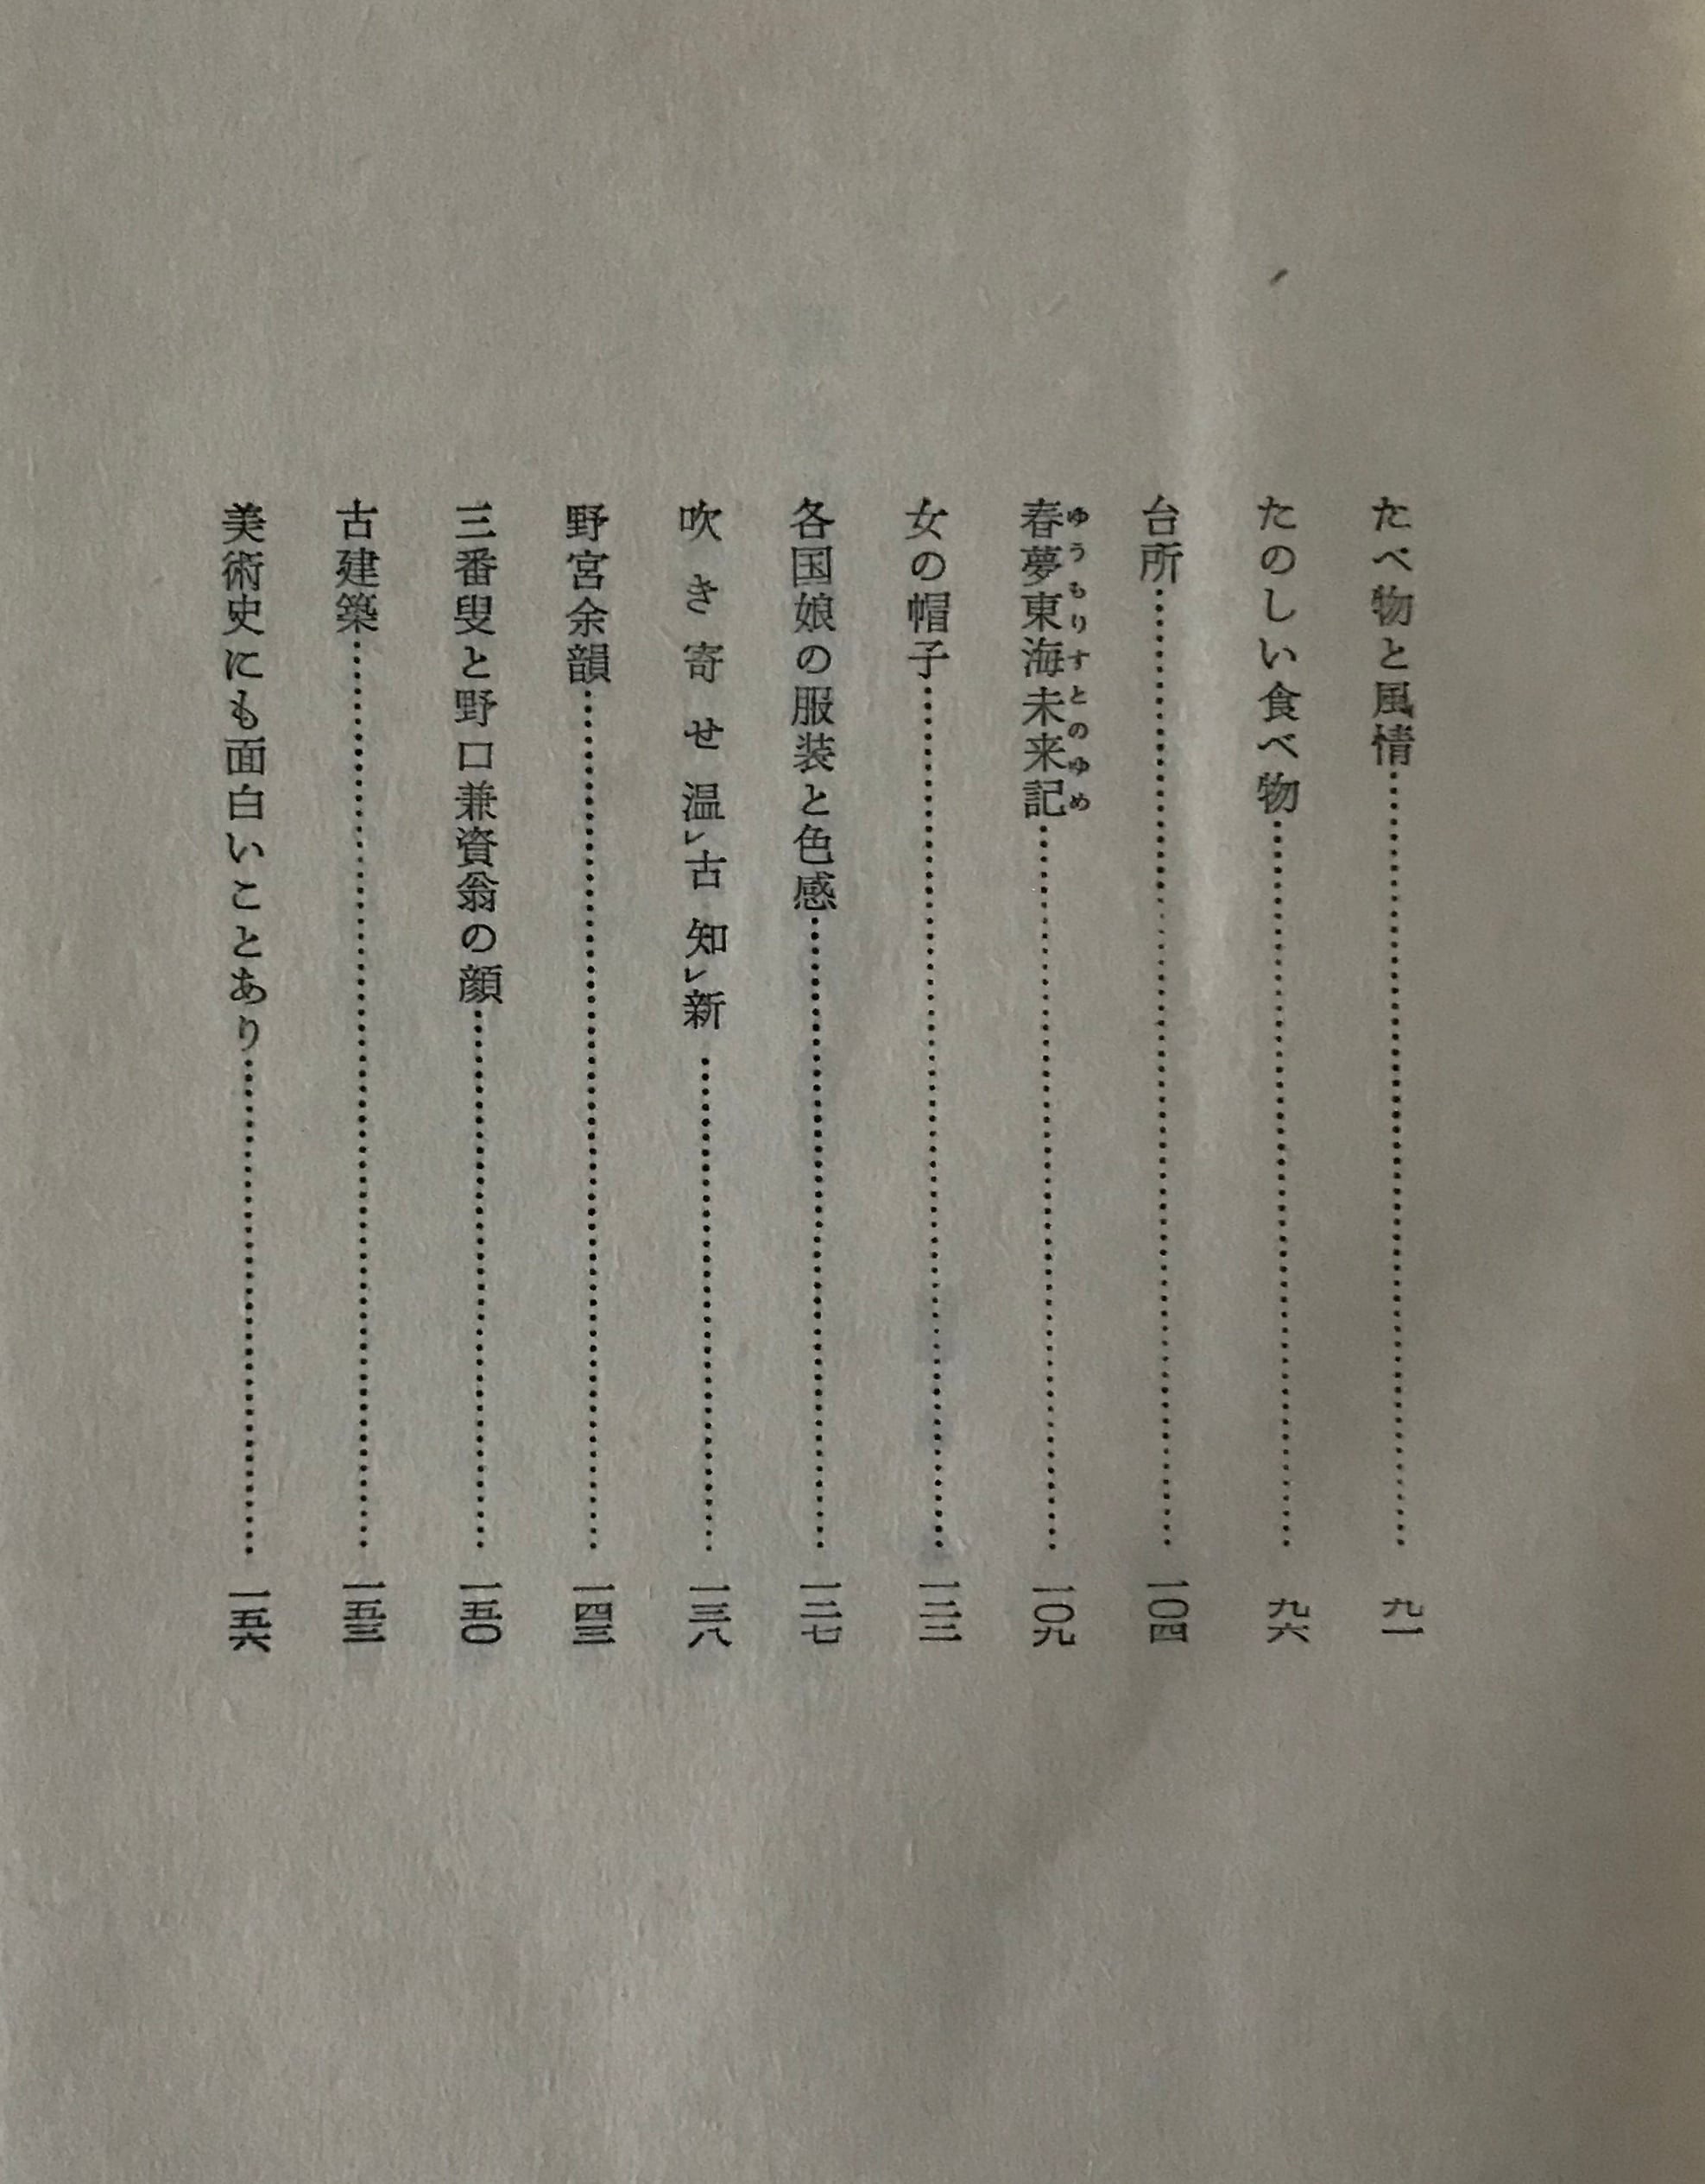 たべ物と風情……………………九一
たのしい食べ物……………………九六
台所……………………一〇四
春夢東海未来記……………………一〇九
ゆうもりすとのゆめ
女の帽子……………………一二二
各国娘の服装と色感……………………一二七
吹き寄せ温レ古 知レ新……………………一三八
野宮余韻……………………一四三
三番叟と野口兼資翁の顔……………………一五〇
古建築……………………一五三
美術史にも面白いことあり……………………一五六